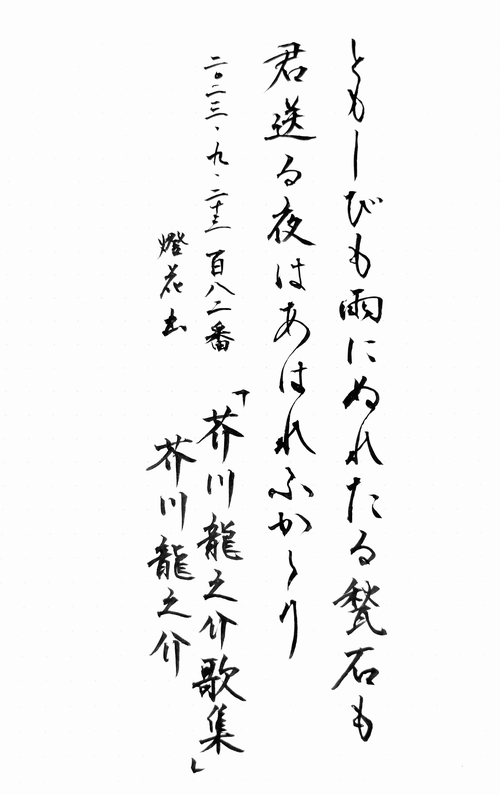 ともしびも雨にぬれたる甃石も
君送る夜はあはれふかゝり
二〇二三、九、二十三 百八二番
「芥川龍之介歌集」
燈花出
芥川龍之介